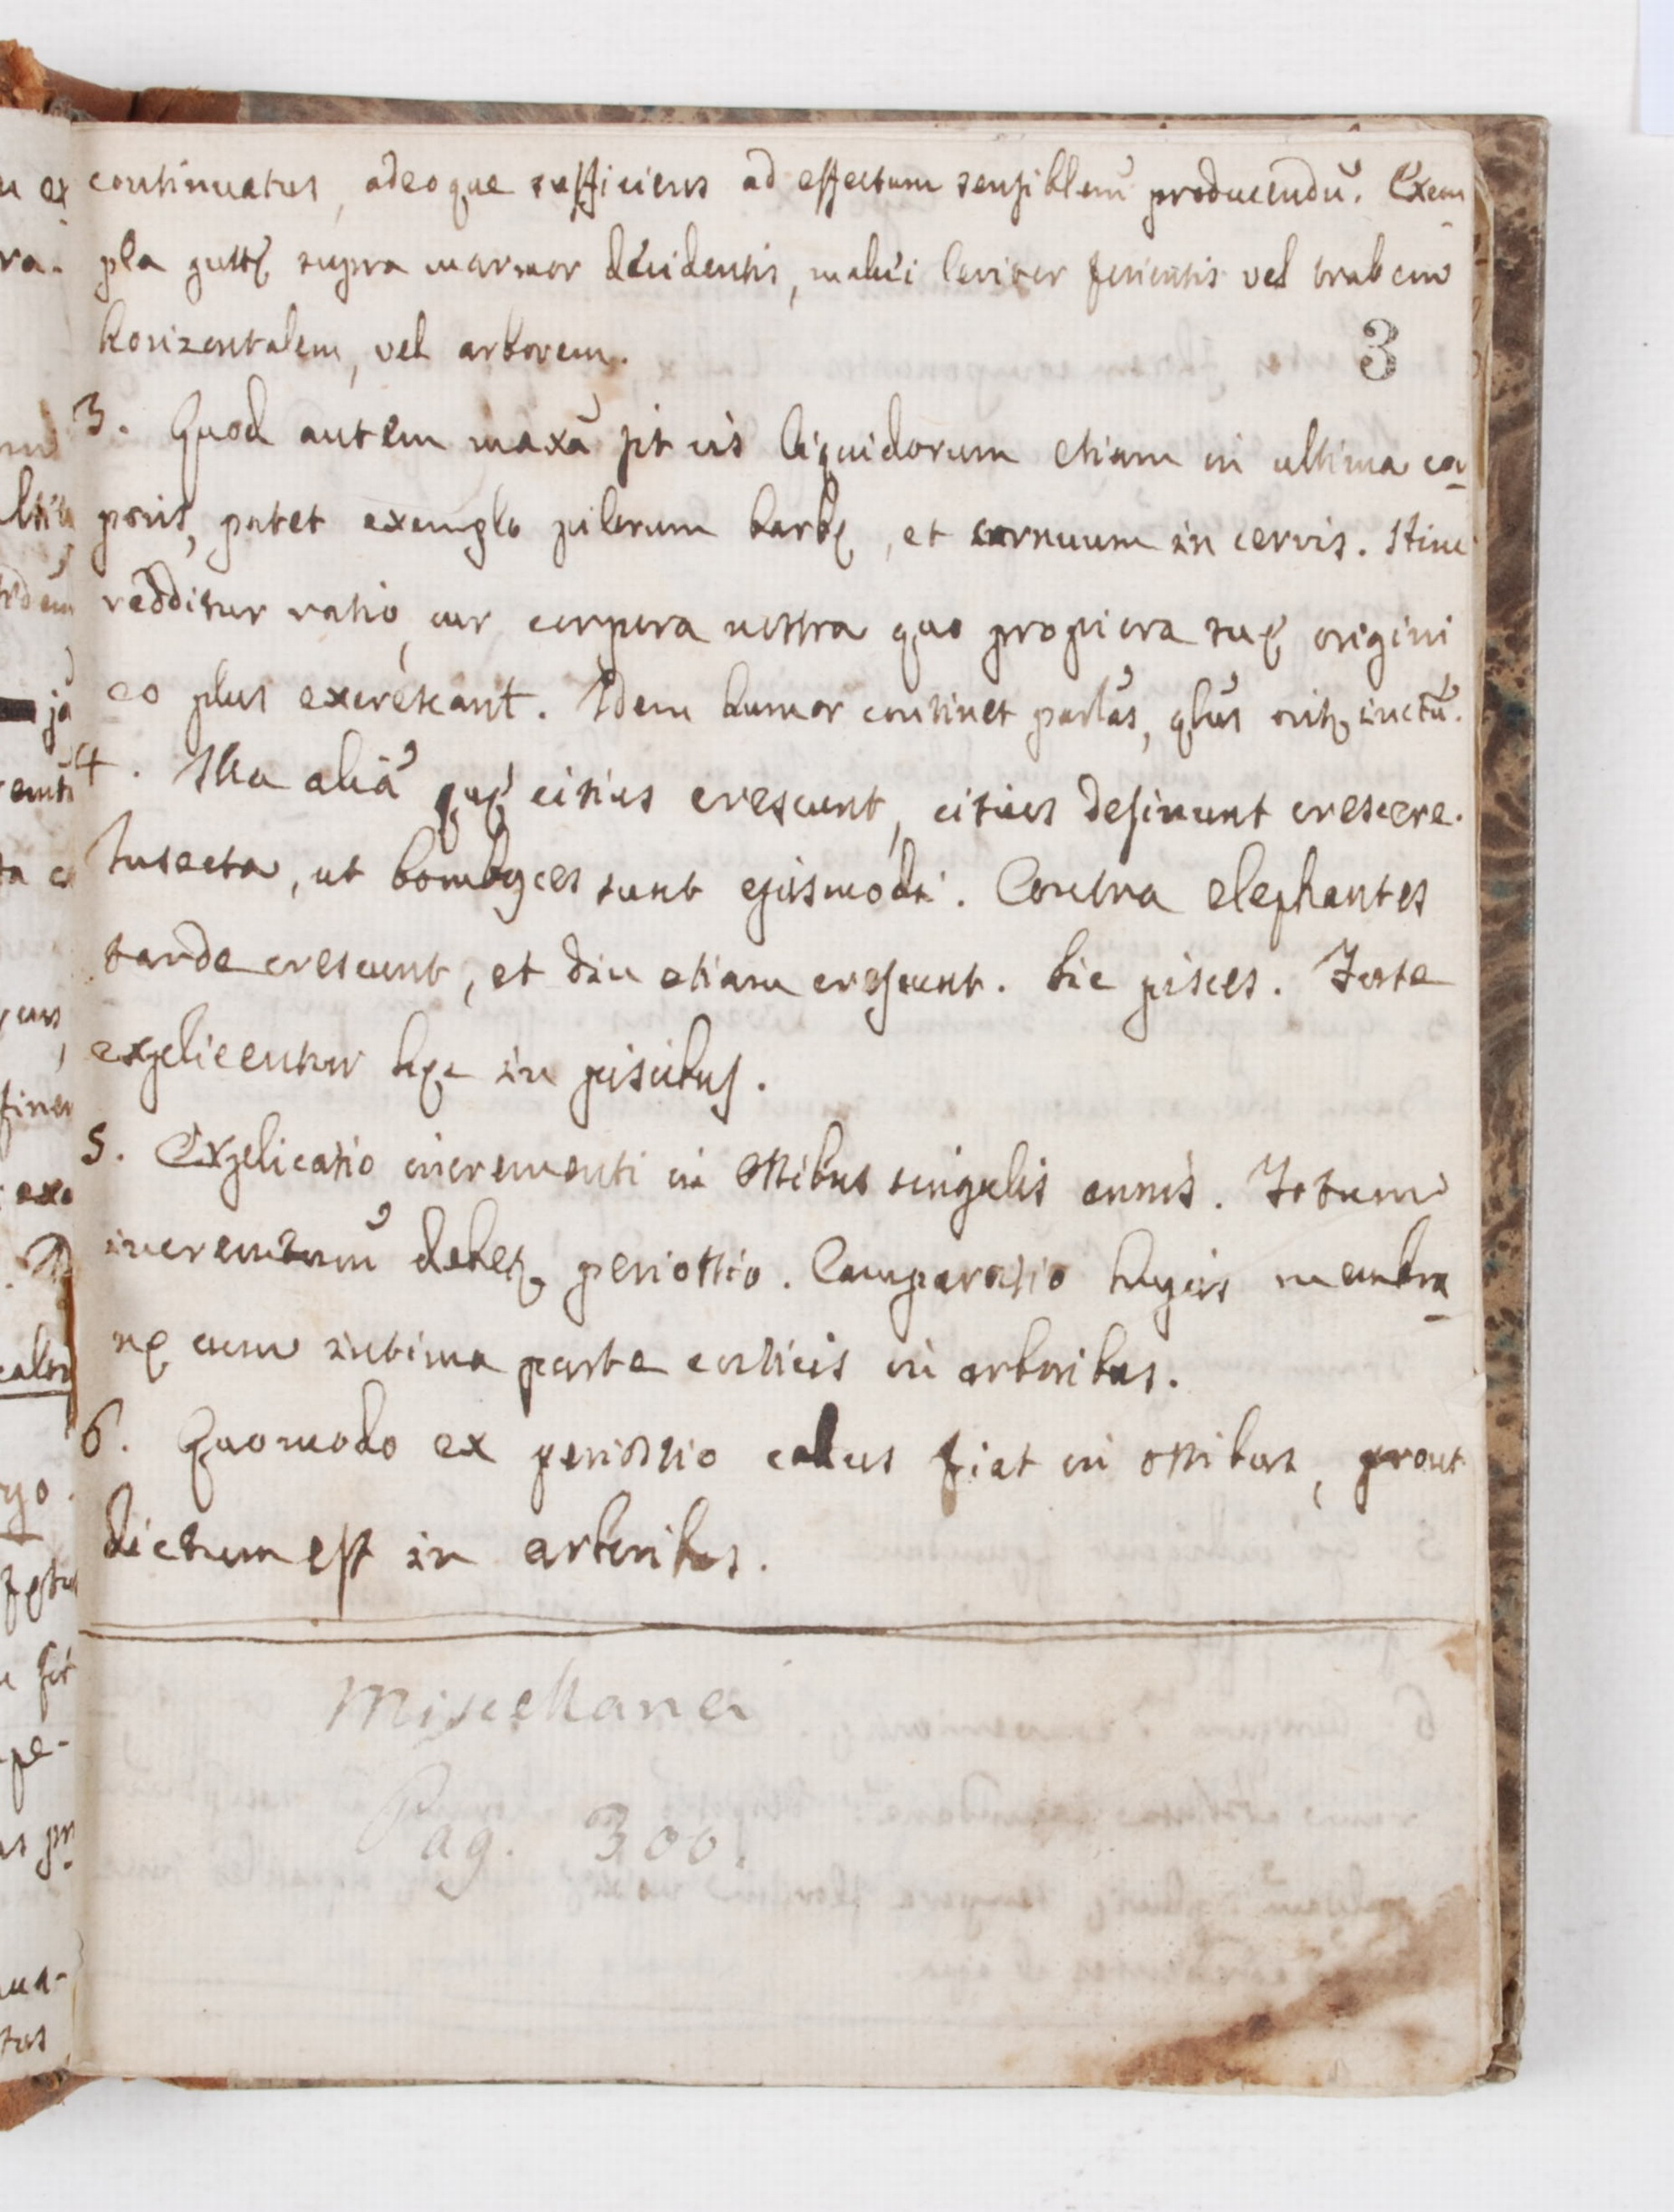 continuatus, adeoque sufficiens ad effectum sensiblem̃ producendũ. Exem
pla guttę supra marmor decidentis, malei leviter ferientis vel trabem
horizontalem, vel arborem.
3
3. Quod autem maxã sit vis liquidorum etiam in ultima ca
poris, patet exemplo pilorum barbę, et cornuum in cervis. Hinc
redditur ratio, cur corpora nostra quo propiora suę origini
eo plus excrescant. Idem humor continet
4. Illa aliã quę citius crescunt, citius desinunt crescere.
Insecta, ut bombyces sunt ejusmodi. Contra elephantes
tarde crescunt, et diu etiam crescunt. Sic pisces. Forte
explicentur hęc in piscibus.
5. Explicatio incrementi in ossibus singulis annis. Totum
incrementum̃ debetę periostio. Comparatio hujus membra
nę cum intima parte corticis in arboribus.
6. Quomodo ex periostio calus fiat in ossibus, prout
dictum est in arboribus.
Miscellanei
Pag. 300.